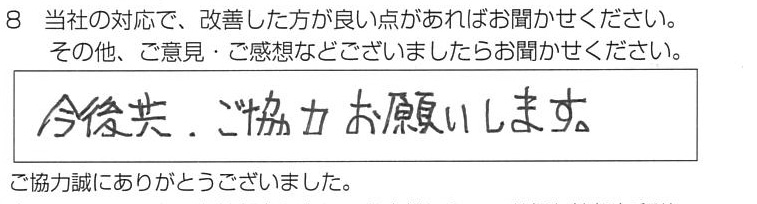 8 当社の対応で、改善した方が良い点があればお聞かせください。
その他、ご意見・ご感想などございましたらお聞かせください。
今後共、ご協力お願いします。
ご協力誠にありがとうございました。